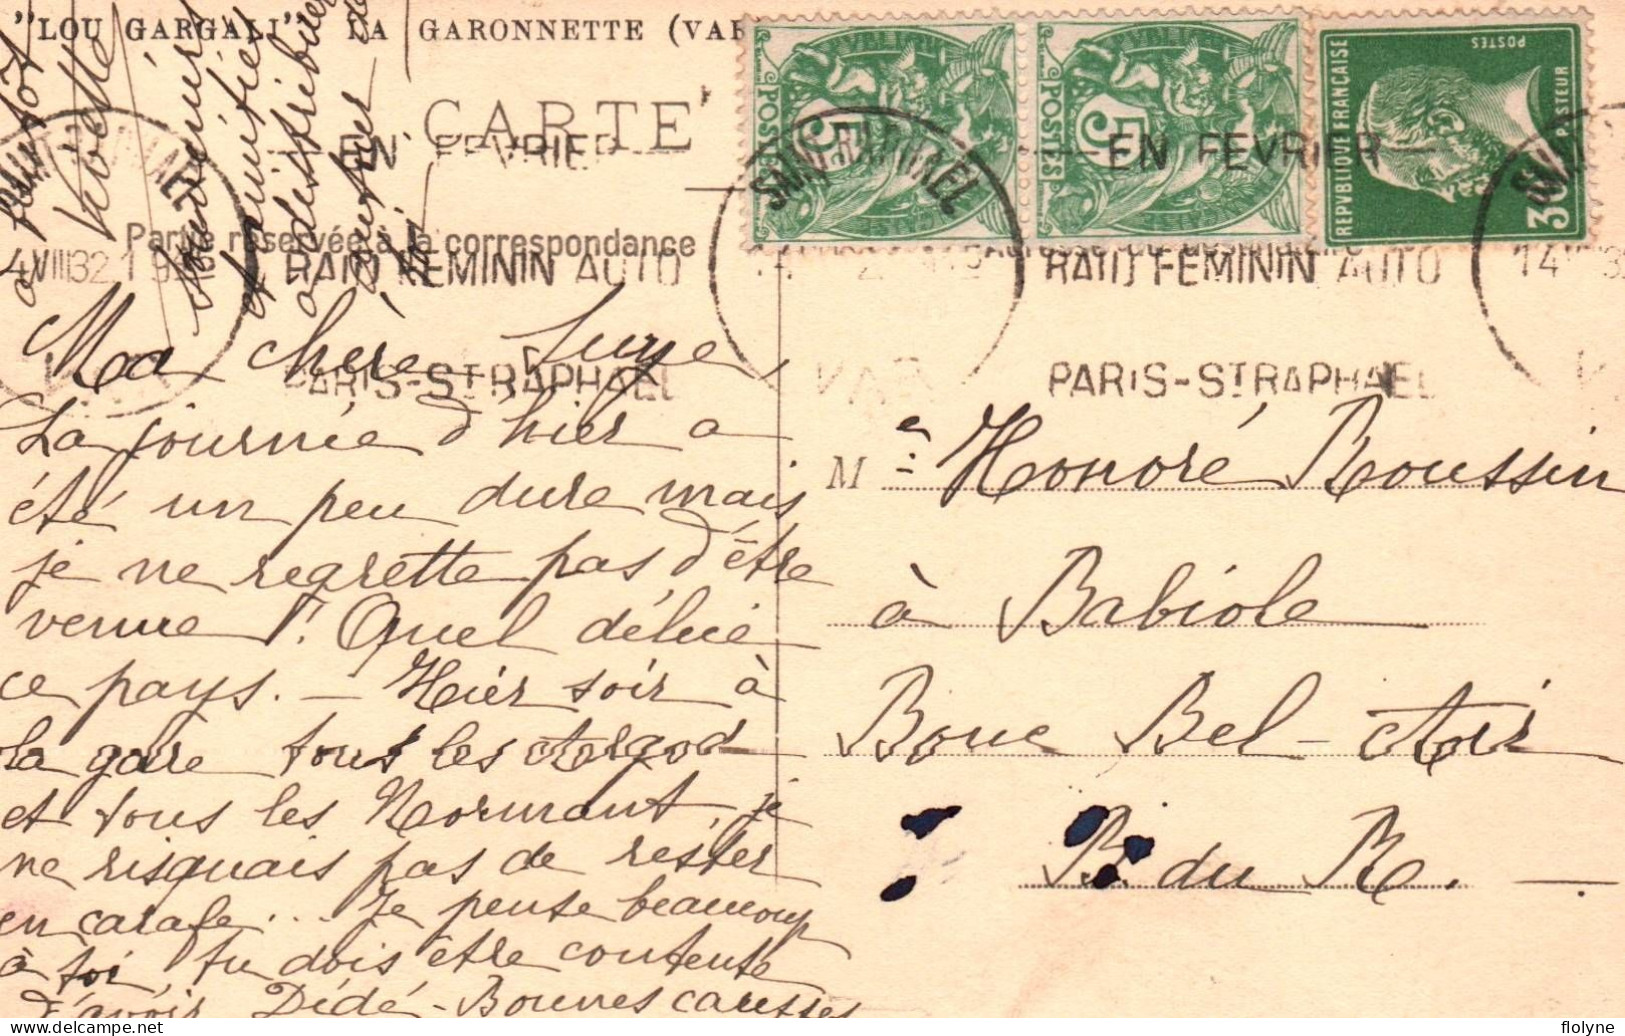 "LOU GARGALI" LA GARONNETTE (VAR
CARTE
Partie réservée à la correspondance
EN FEVRIER
RAID FEMININ AUTO
PARIS-ST RAPHAEL
SAINT-RAPHAEL
VAR
POSTES
5
POSTES
5
REPVBLIQUE FRANÇAISE
POSTES
PASTEUR
30
EN FEVRIER
RAID FEMININ AUTO
PARIS-ST RAPHAEL
Ma chère
La journée d'hier a
été un peu dure mais
je ne regrette pas d'être
venue ! Quel délicie
ce pays. — Hier soir à
la gare tous les Argod
et tous les Normant, je
ne risquais pas de rester
en carafe... Je pense beaucoup
à toi, tu dois être contente
d'avoir Dédé - Bonnes caresses
à bientôt
Souvenirs
et amitiés
à distribuer
autour
de toi
Me Honoré Roussin
à Babiole
Bouc Bel-Air
B. du R. —
flolyne